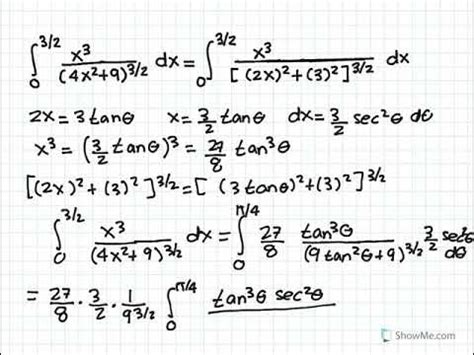 ∫₀^{3/2} x³/(4x²+9)^{3/2} dx = ∫₀^{3/2} x³/[(2x)²+(3)²]^{3/2} dx
2x=3tanθ x=3/2 tanθ dx=3/2 sec²θ dθ
x³=(3/2 tanθ)³=27/8 tan³θ
[(2x)²+(3)²]^{3/2}=[(3tanθ)²+(3)²]^{3/2}
∫₀^{3/2} x³/(4x²+9)^{3/2} dx=∫₀^{π/4} 27/8 tan³θ/(9tan²θ+9)^{3/2} 3/2 sec²θ dθ
=27/8·3/2·1/9^{3/2} ∫₀^{π/4} tan³θ sec²θ
ShowMe.com